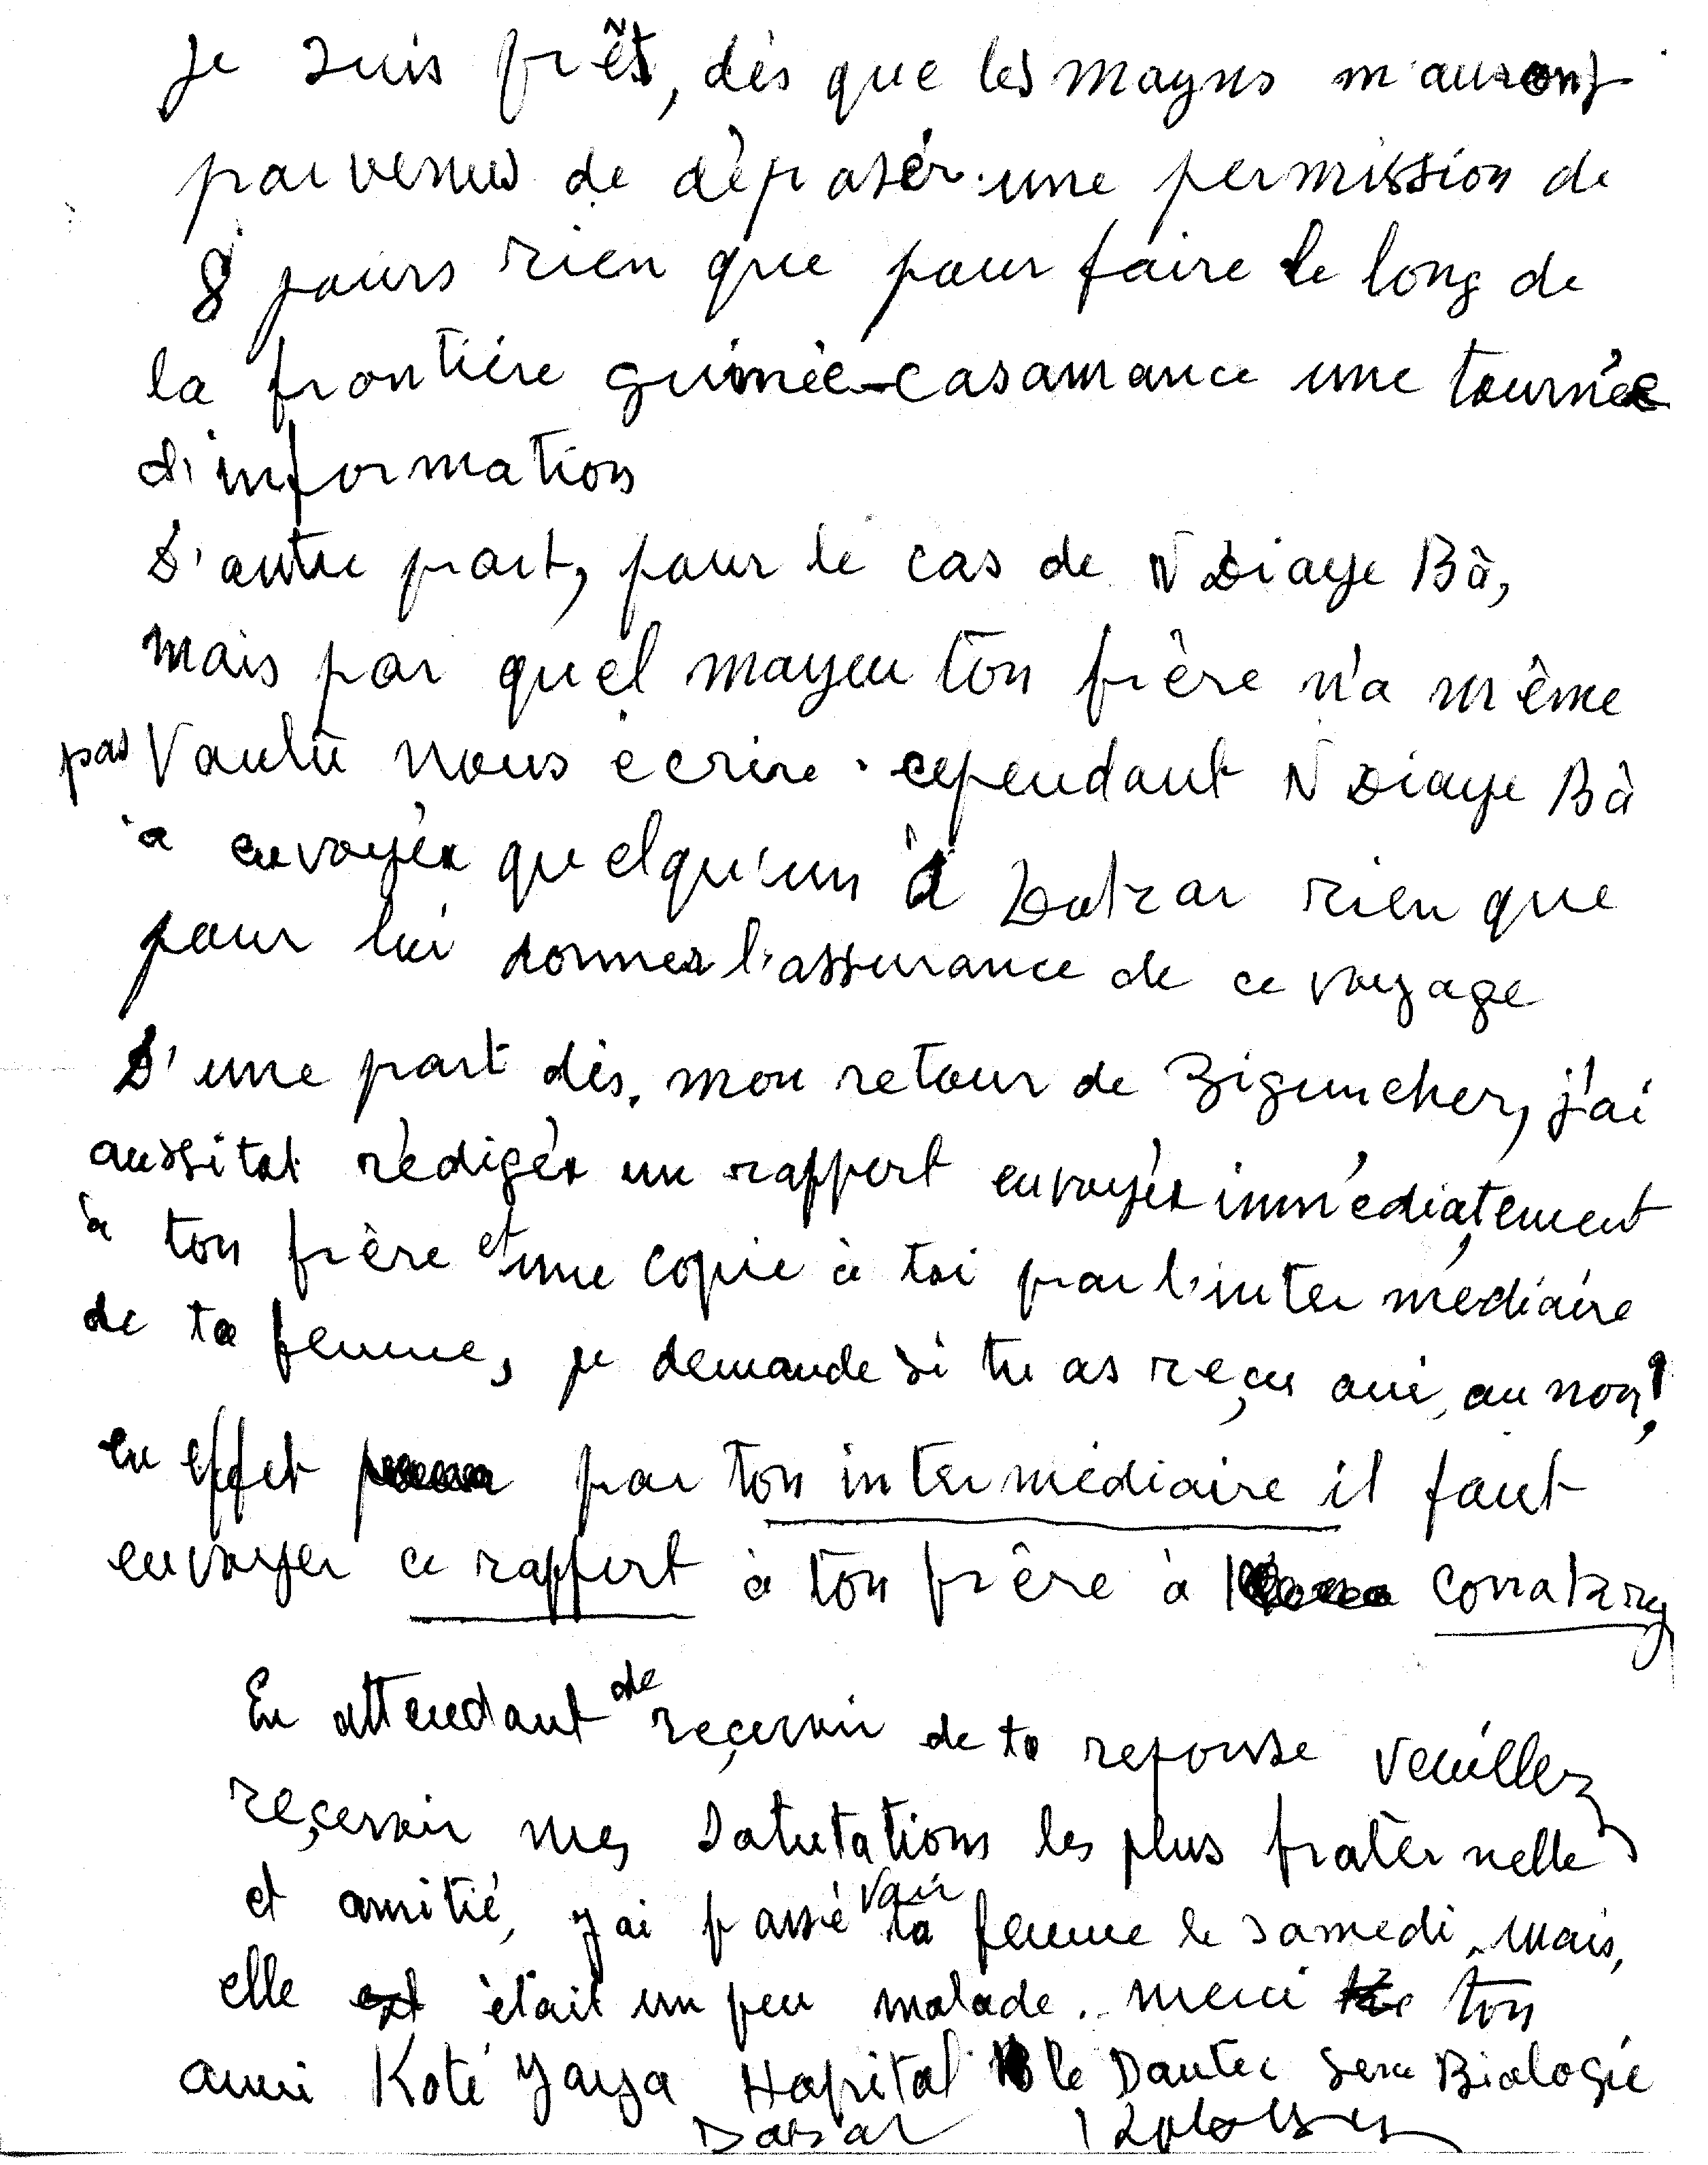 Je suis prêt, dès que les moyns m'auront
parvenus de déposér une permission de
8 jours rien que pour faire le long de
la frontière guinée-casamance une tournée
d'information
D'autre part, pour le cas de N'Diaye Bâ,
mais par quel moyeu ton frère n'a même
pas voulu nous écrire. cependant N Diaye Bâ
a envoyér quelqu'un à Dakar rien que
pour lui donner l'assurance de ce voyage
D'une part dès. mon retour de Ziguncher, j'ai
aussitot rédigér un rapport envoyér immédiatement
à ton frère et une copie à toi par l'intermédiaire
de ta femme, je demande si tu as reçu oui, ou non!
en effet par ton intermédiaire il faut
envoyer ce rapport à ton frère à Conakry
En attendant de reçevoir de ta reponse veuillez
reçevoir mes salutations les plus fraternelle
et amitié, j'ai passé voir ta femme le samedi, mais,
elle était un peu malade. merci ton
ami Koté Yaya Hopital le Dantec Serv Biologie
Dakar